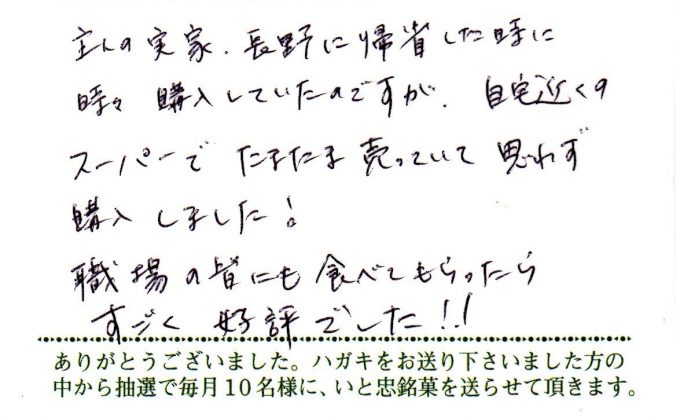 主人の実家、長野に帰省した時に
時々購入していたのですが、自宅近くの
スーパーでたまたま売っていて思わず
購入しました!
職場の皆にも食べてもらったら
すごく好評でした!!
ありがとうございました。ハガキをお送り下さいました方の
中から抽選で毎月10名様に、いと忠銘菓を送らせて頂きます。